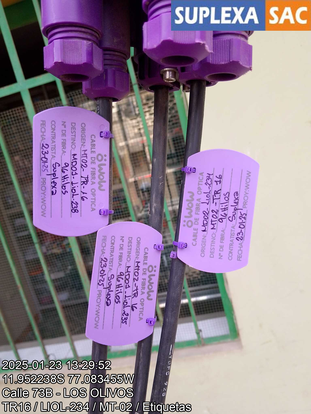 SUPLEXA SAC
wow
CABLE DE FIBRA OPTICA
ORIGEN: MT02-TR 16
DESTINO: MD01-LIOL-238
N° DE FIBRA: 96 Hilos
CONTRATISTA: Suplexa
FECHA: 23-01-25 PROYWOW
wow
CABLE DE FIBRA OPTICA
ORIGEN: MT02-TR 16
N° DE FIBRA: 96 Hilos
CONTRATISTA: Suplexa
FECHA: 23-01-25 PROYWOW
wow
CABLE DE FIBRA OPTICA
ORIGEN: MD02-LIOL-234
DESTINO: MT02-TR 16
N° DE FIBRA: 96 Hilos
CONTRATISTA: Suplexa
FECHA: 23-01-25 PROYWOW
2025-01-23 13:29:52
11.952238S 77.083455W
Calle 73B - LOS OLIVOS
TR16 / LIOL-234 / MT-02 / Etiquetas